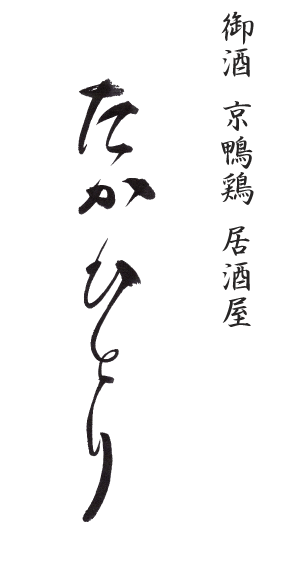 御酒 京鴨鶏 居酒屋
たかひとり